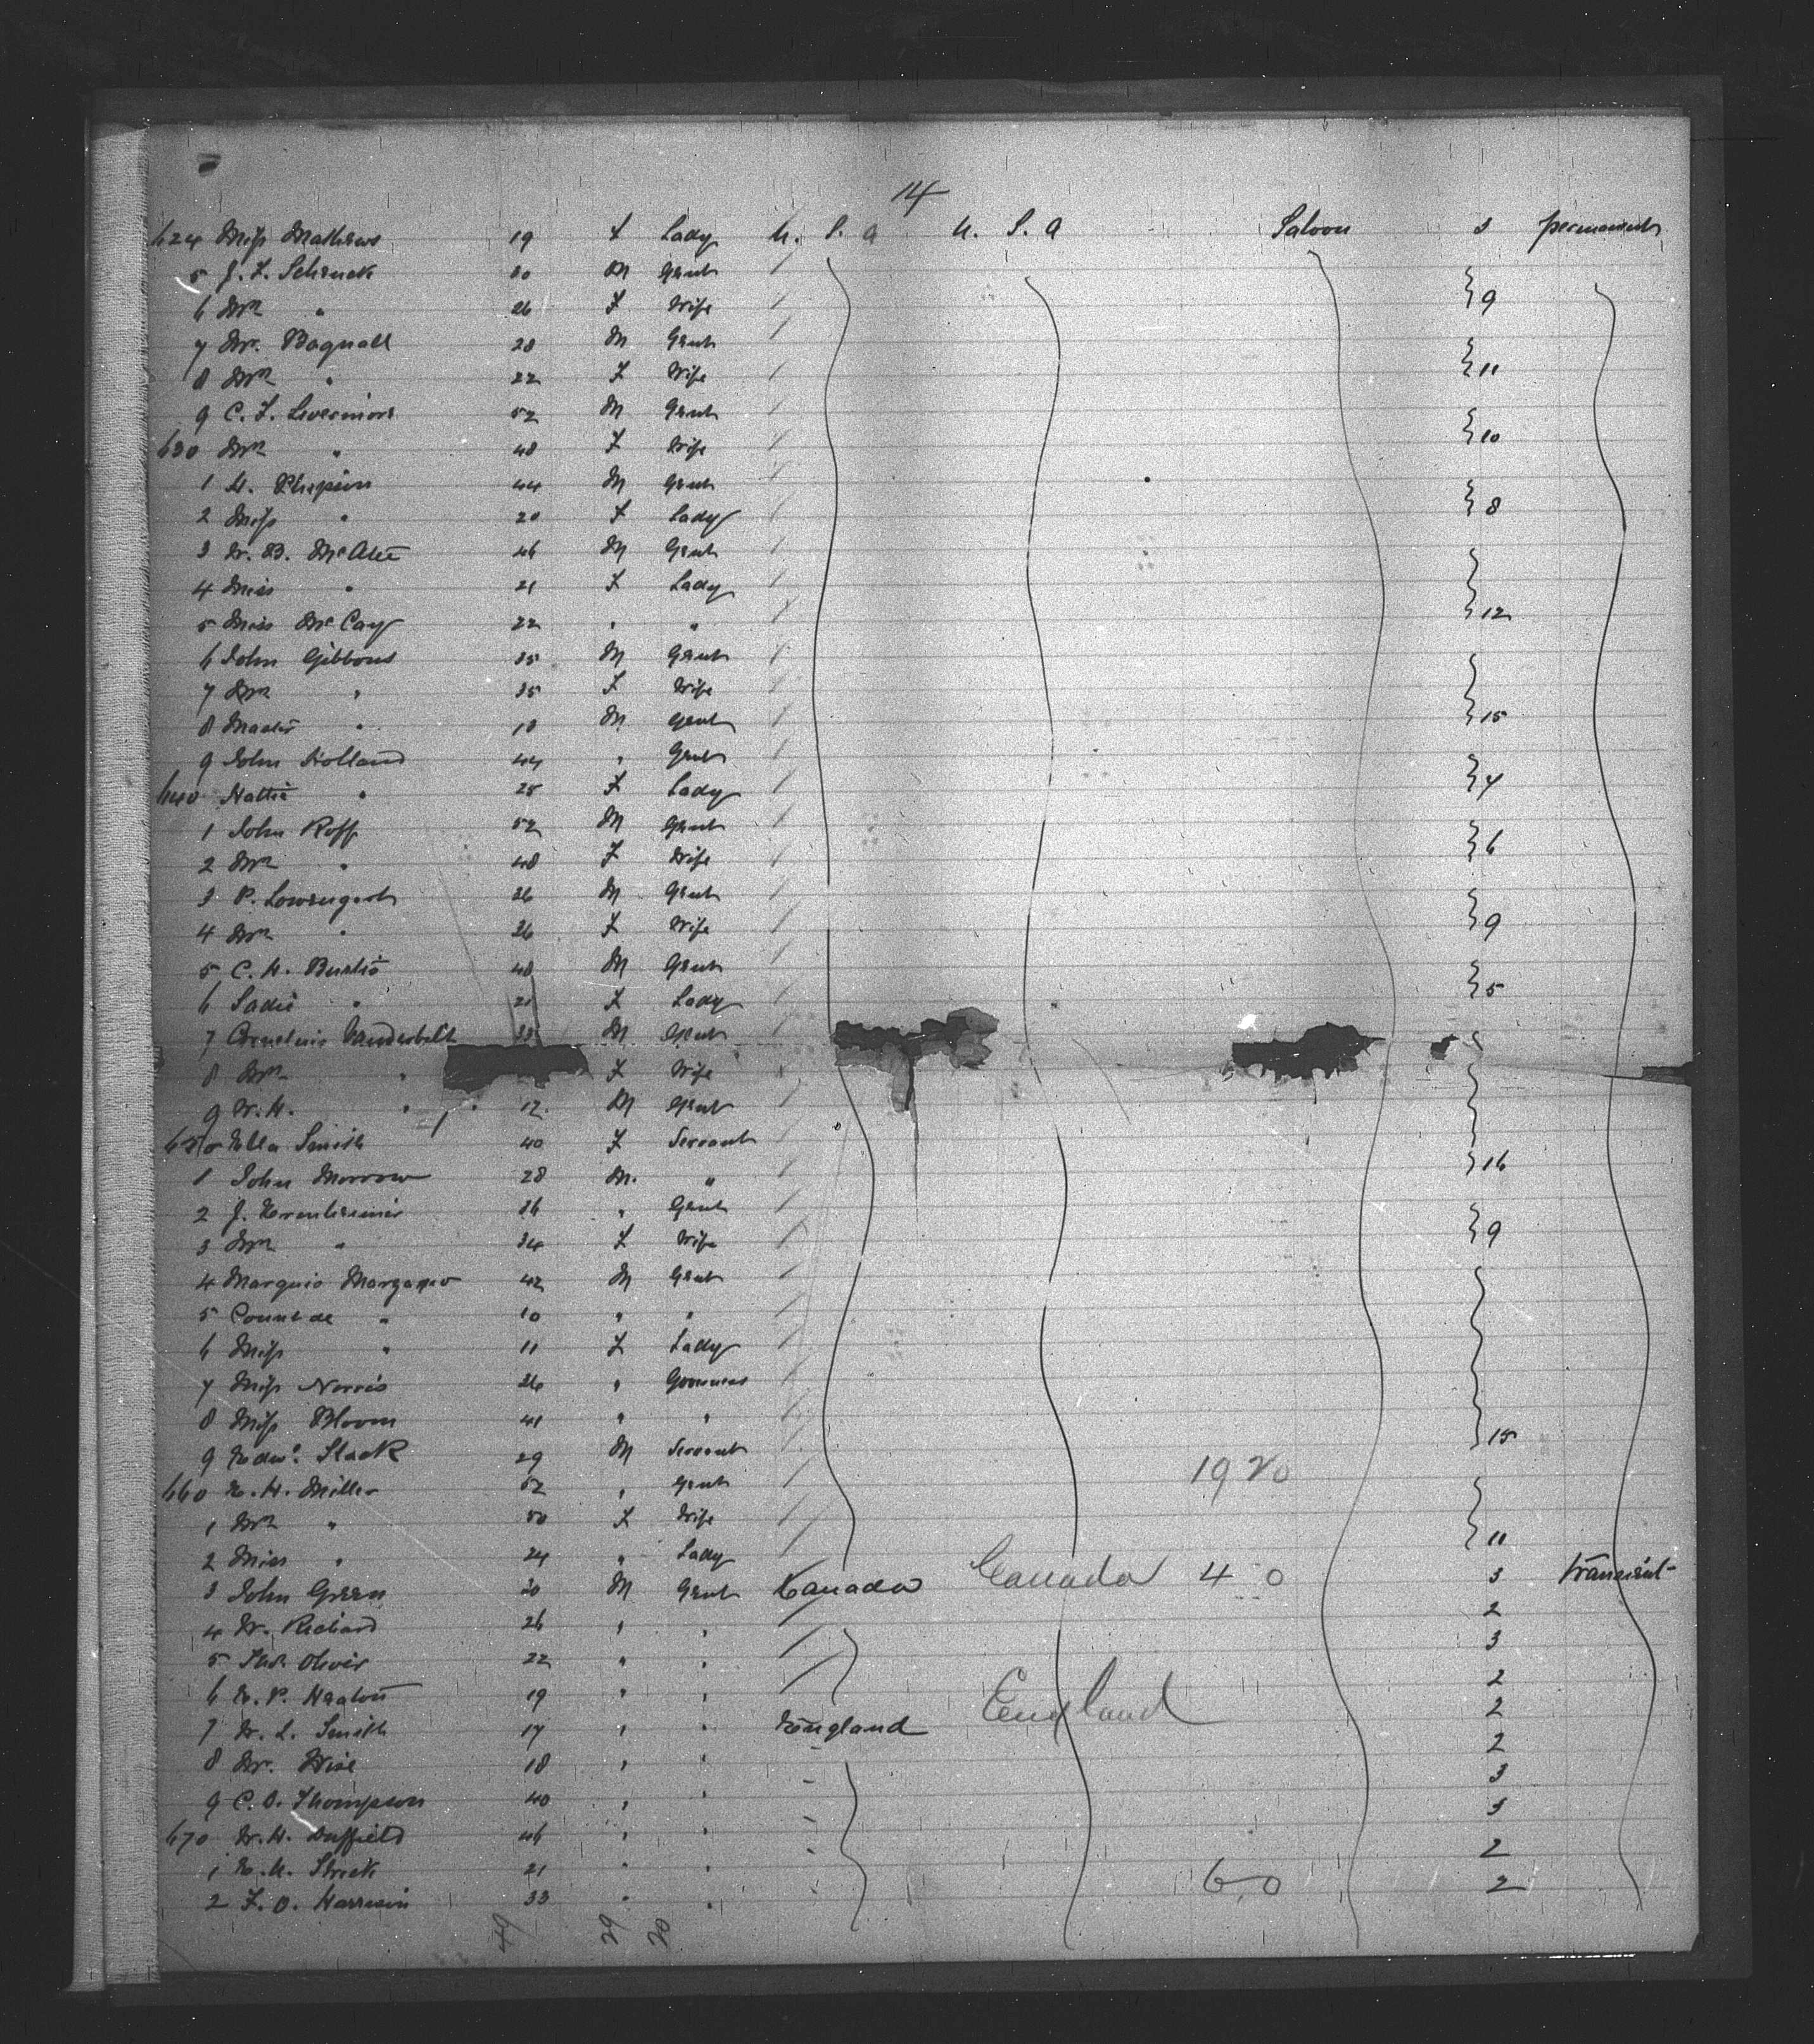 14
624 Miss Mathews 19 F Lady U. S. A U. S. A Saloon 3 permanent
5 J. F. Schenck 30 M Gent
6 Mrs " 26 F Wife 9
7 Mr. Bagnall 28 M Gent
8 Mrs " 22 F Wife 11
9 C. F. Livermore 52 M Gent
630 Mrs " 48 F Wife 10
1 H. Phipson 44 M Gent
2 Miss " 20 F Lady 8
3 W. B. McAtee 46 M Gent
4 Miss " 21 F Lady
5 Miss McCay 22 " " 12
6 John Gibbons 35 M Gent
7 Mrs " 35 F Wife
8 Master " 10 M Gent 15
9 John Holland 44 " Gent
640 Hattie " 25 F Lady 4
1 John Roff 52 M Gent
2 Mrs " 48 F Wife 6
3 P. 36 M Gent
4 Mrs " 26 F Wife 9
5 C. H. 48 M Gent
6 Sadie " 21 F Lady 5
7 Cornelius Vanderbilt 33 M Gent
8 Mrs " F Wife
9 W. H. " 12 M Gent
650 Ella Smith 40 F Servant
1 John Morrow 28 M. " 16
2 J. 36 " Gent
3 Mrs " 34 F Wife 9
4 Marquis 42 M Gent
5 Count de " 10 " "
6 Miss " 11 F Lady
7 Miss Norris 26 " Governess
8 Miss Bloom 41 " "
9 Edwd. Slack 29 M Servant 15
1920
660 E. H. Miller 52 " Gent
1 Mrs " 50 F Wife
2 Miss " 24 " Lady 11
3 John Green 20 M Gent Canada Canada 40 3 transient
4 W. Richard 26 " " 2
5 Thos. Olivir 22 " " 3
6 E. P. Heaton 19 " " 2
7 W. L. Smith 17 " " England England 2
8 Mr. Wise 18 " " 2
9 C. O. Thompson 40 " " 3
670 W. H. Duffield 46 " " 3
1 E. H. 21 " " 2
2 F. O. Harrison 33 " " 60 2
49 29 20